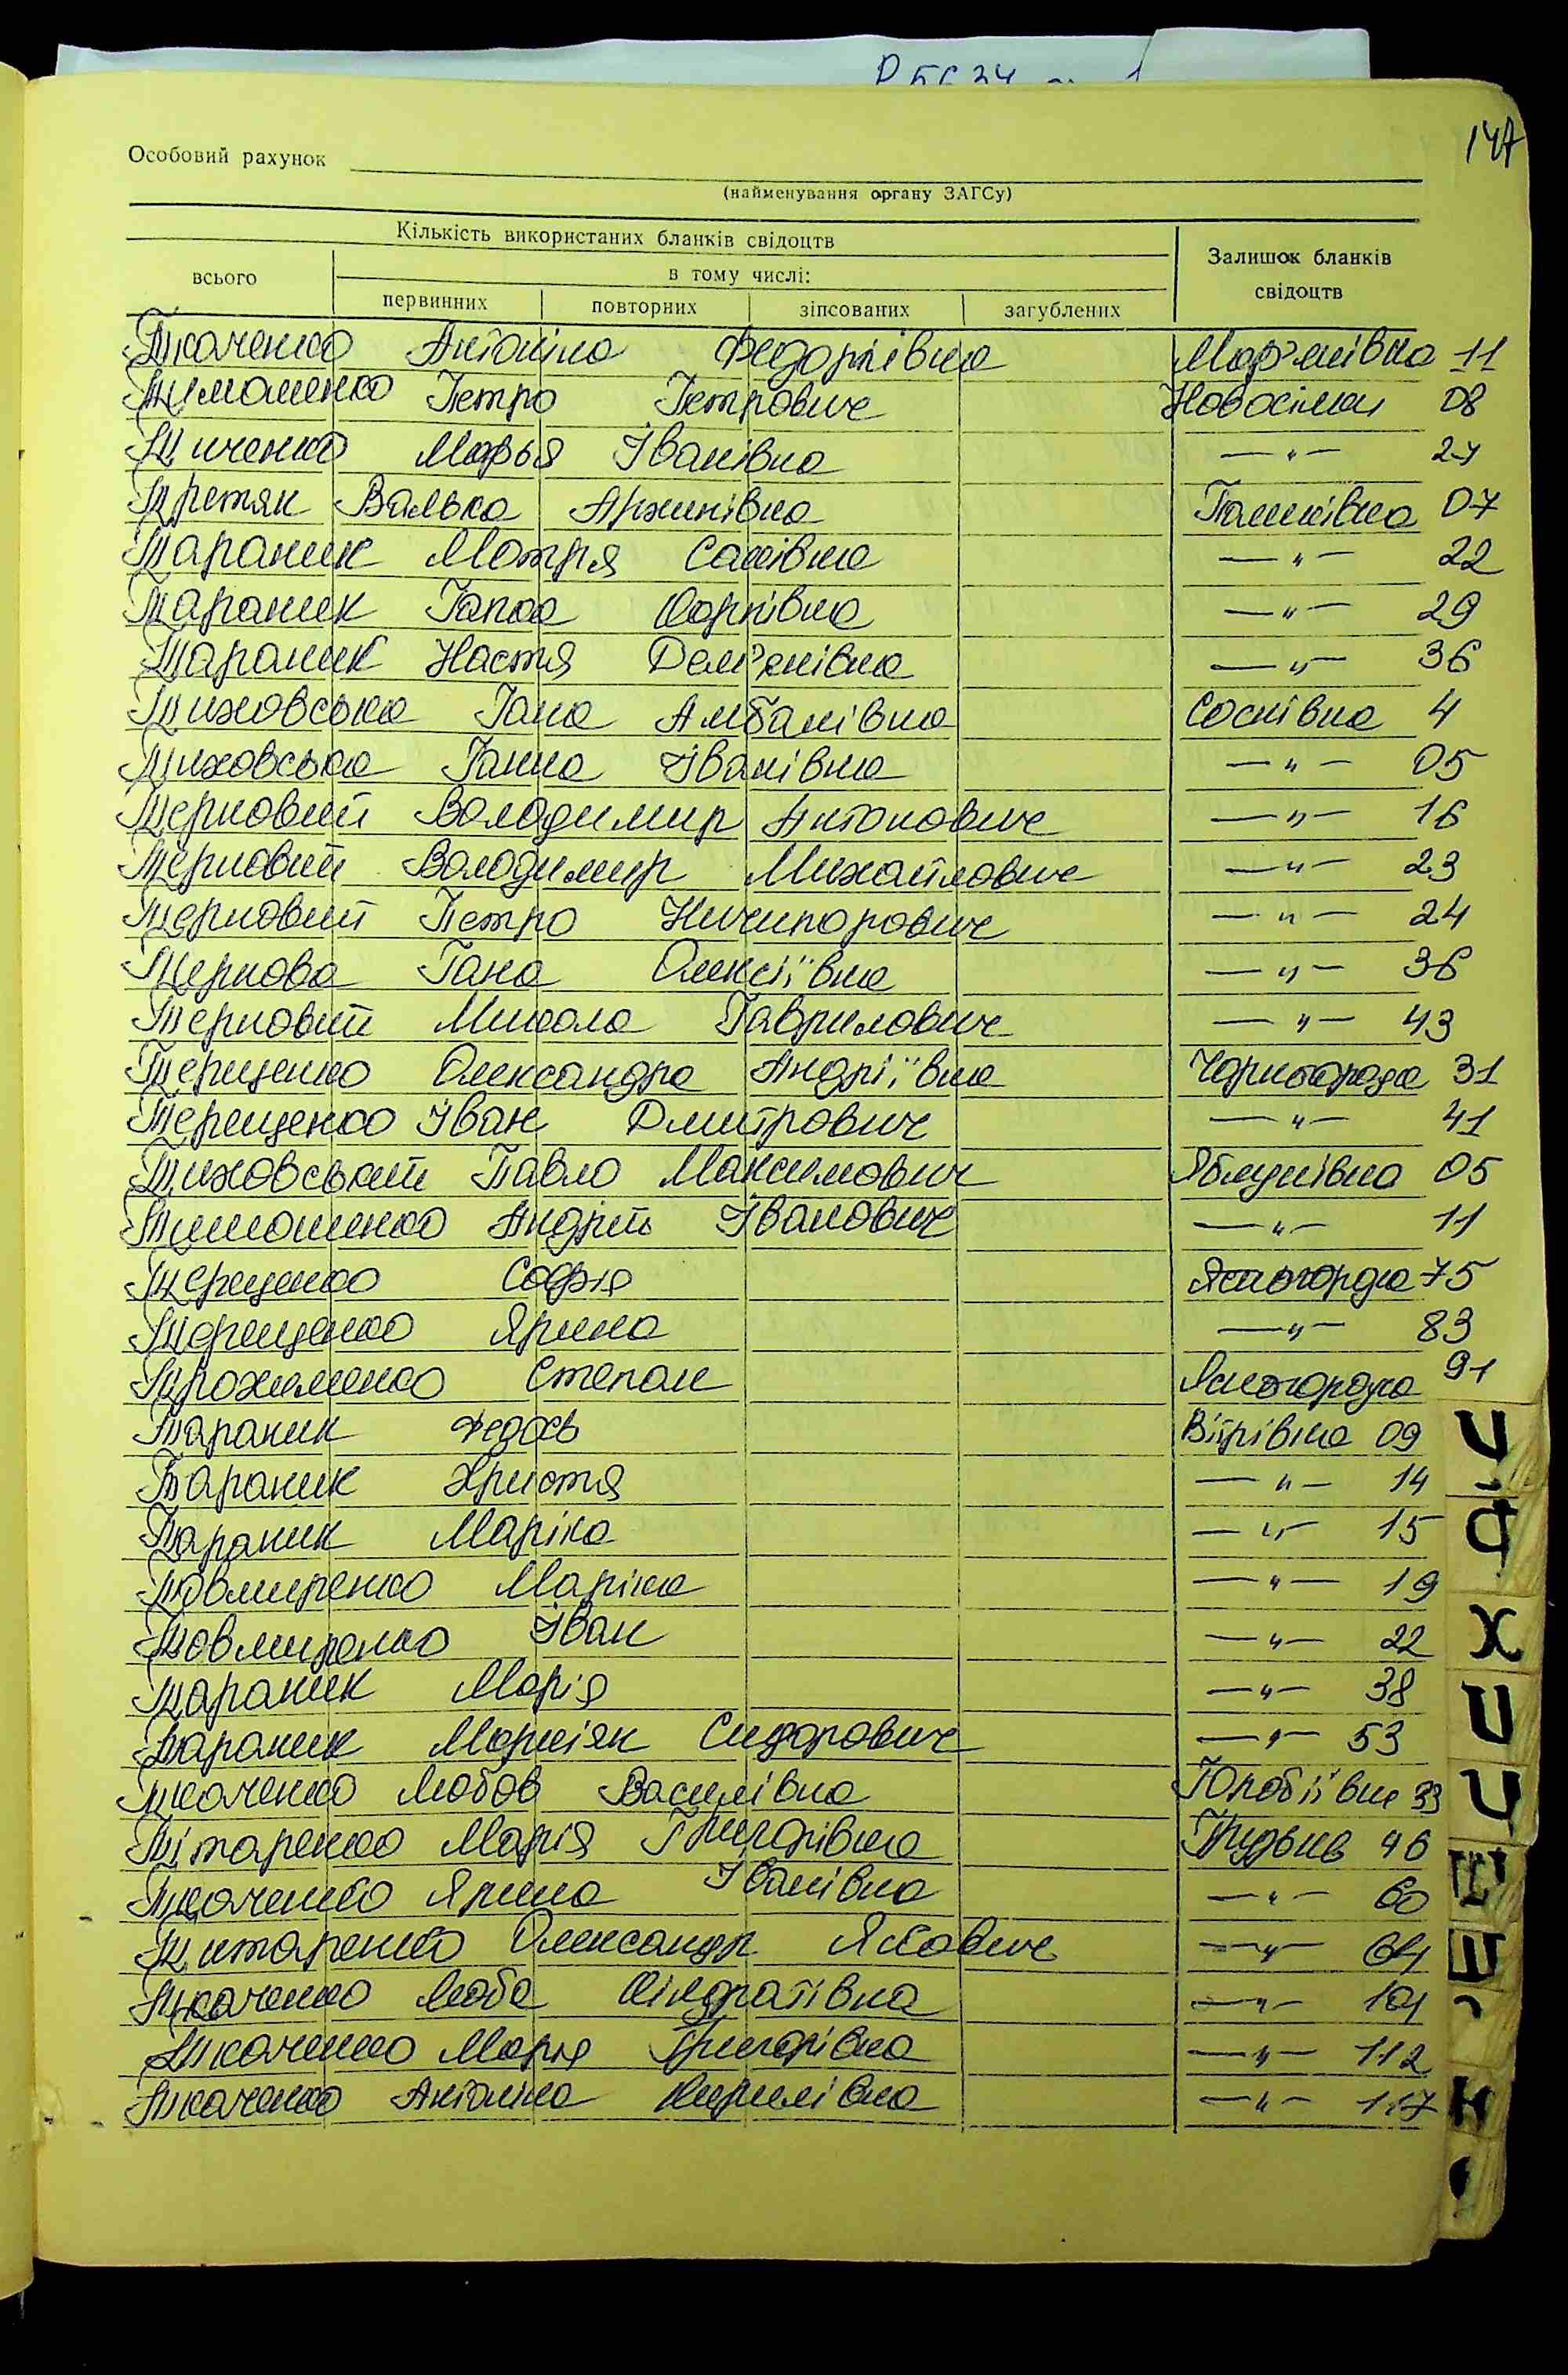 147
Особовий рахунок
(найменування органу ЗАГСу)
Кількість використаних бланків свідоцтв
Залишок бланків свідоцтв
всього
в тому числі:
первинних повторних зіпсованих загублених
Ткаченко Антоніна Федорівна Мар'янівка 11
Тимошенко Петро Петрович Новосілки 08
Марья Іванівна —"— 27
Третяк Валька Аркипівна Пашківка 07
Тараник Мотря Савівна —"— 22
Тараник Гапка Карпівна —"— 29
Тараник Настя Дем'янівна —"— 36
Тиховська Гана Албанівна Соснівка 4
Тиховська Ганна Іванівна —"— 05
Терновий Володимир Антонович —"— 16
Терновий Володимир Михайлович —"— 23
Терновий Петро Ничипорович —"— 24
Тернова Гана Олексіївна —"— 36
Терновий Микола Гаврилович —"— 43
Терещенко Олександра Андріївна Чорногородка 31
Терещенко Іван Дмитрович —"— 41
Тиховський Павло Максимович Яблунівка 05
Тимошенко Андрій Іванович —"— 11
Терещенко Софія Ясногородка 75
Терещенко Ярина —"— 83
Трохименко Степан Ясногородка 91
Тараник Федось Вітрівка 09
Тараник Христя —"— 14
Тараник Маріка —"— 15
Товмиренко Маріка —"— 19
Товмиренко Іван —"— 22
Тараник Марія —"— 38
Тараник Сидорович —"— 53
Ткаченко Любов Василівна Юрівка 33
Тітаренко Марія Григорівна 46
Ткаченко Ярина Іванівна —"— 60
Титаренко Олександр Якович —"— 64
Ткаченко Люба Кіндратівна —"— 101
Ткаченко Марія Григорівна —"— 112
Ткаченко Антоніна Кирилівна —"— 117
Ф
Х
Ц
Ч
Ш
Щ